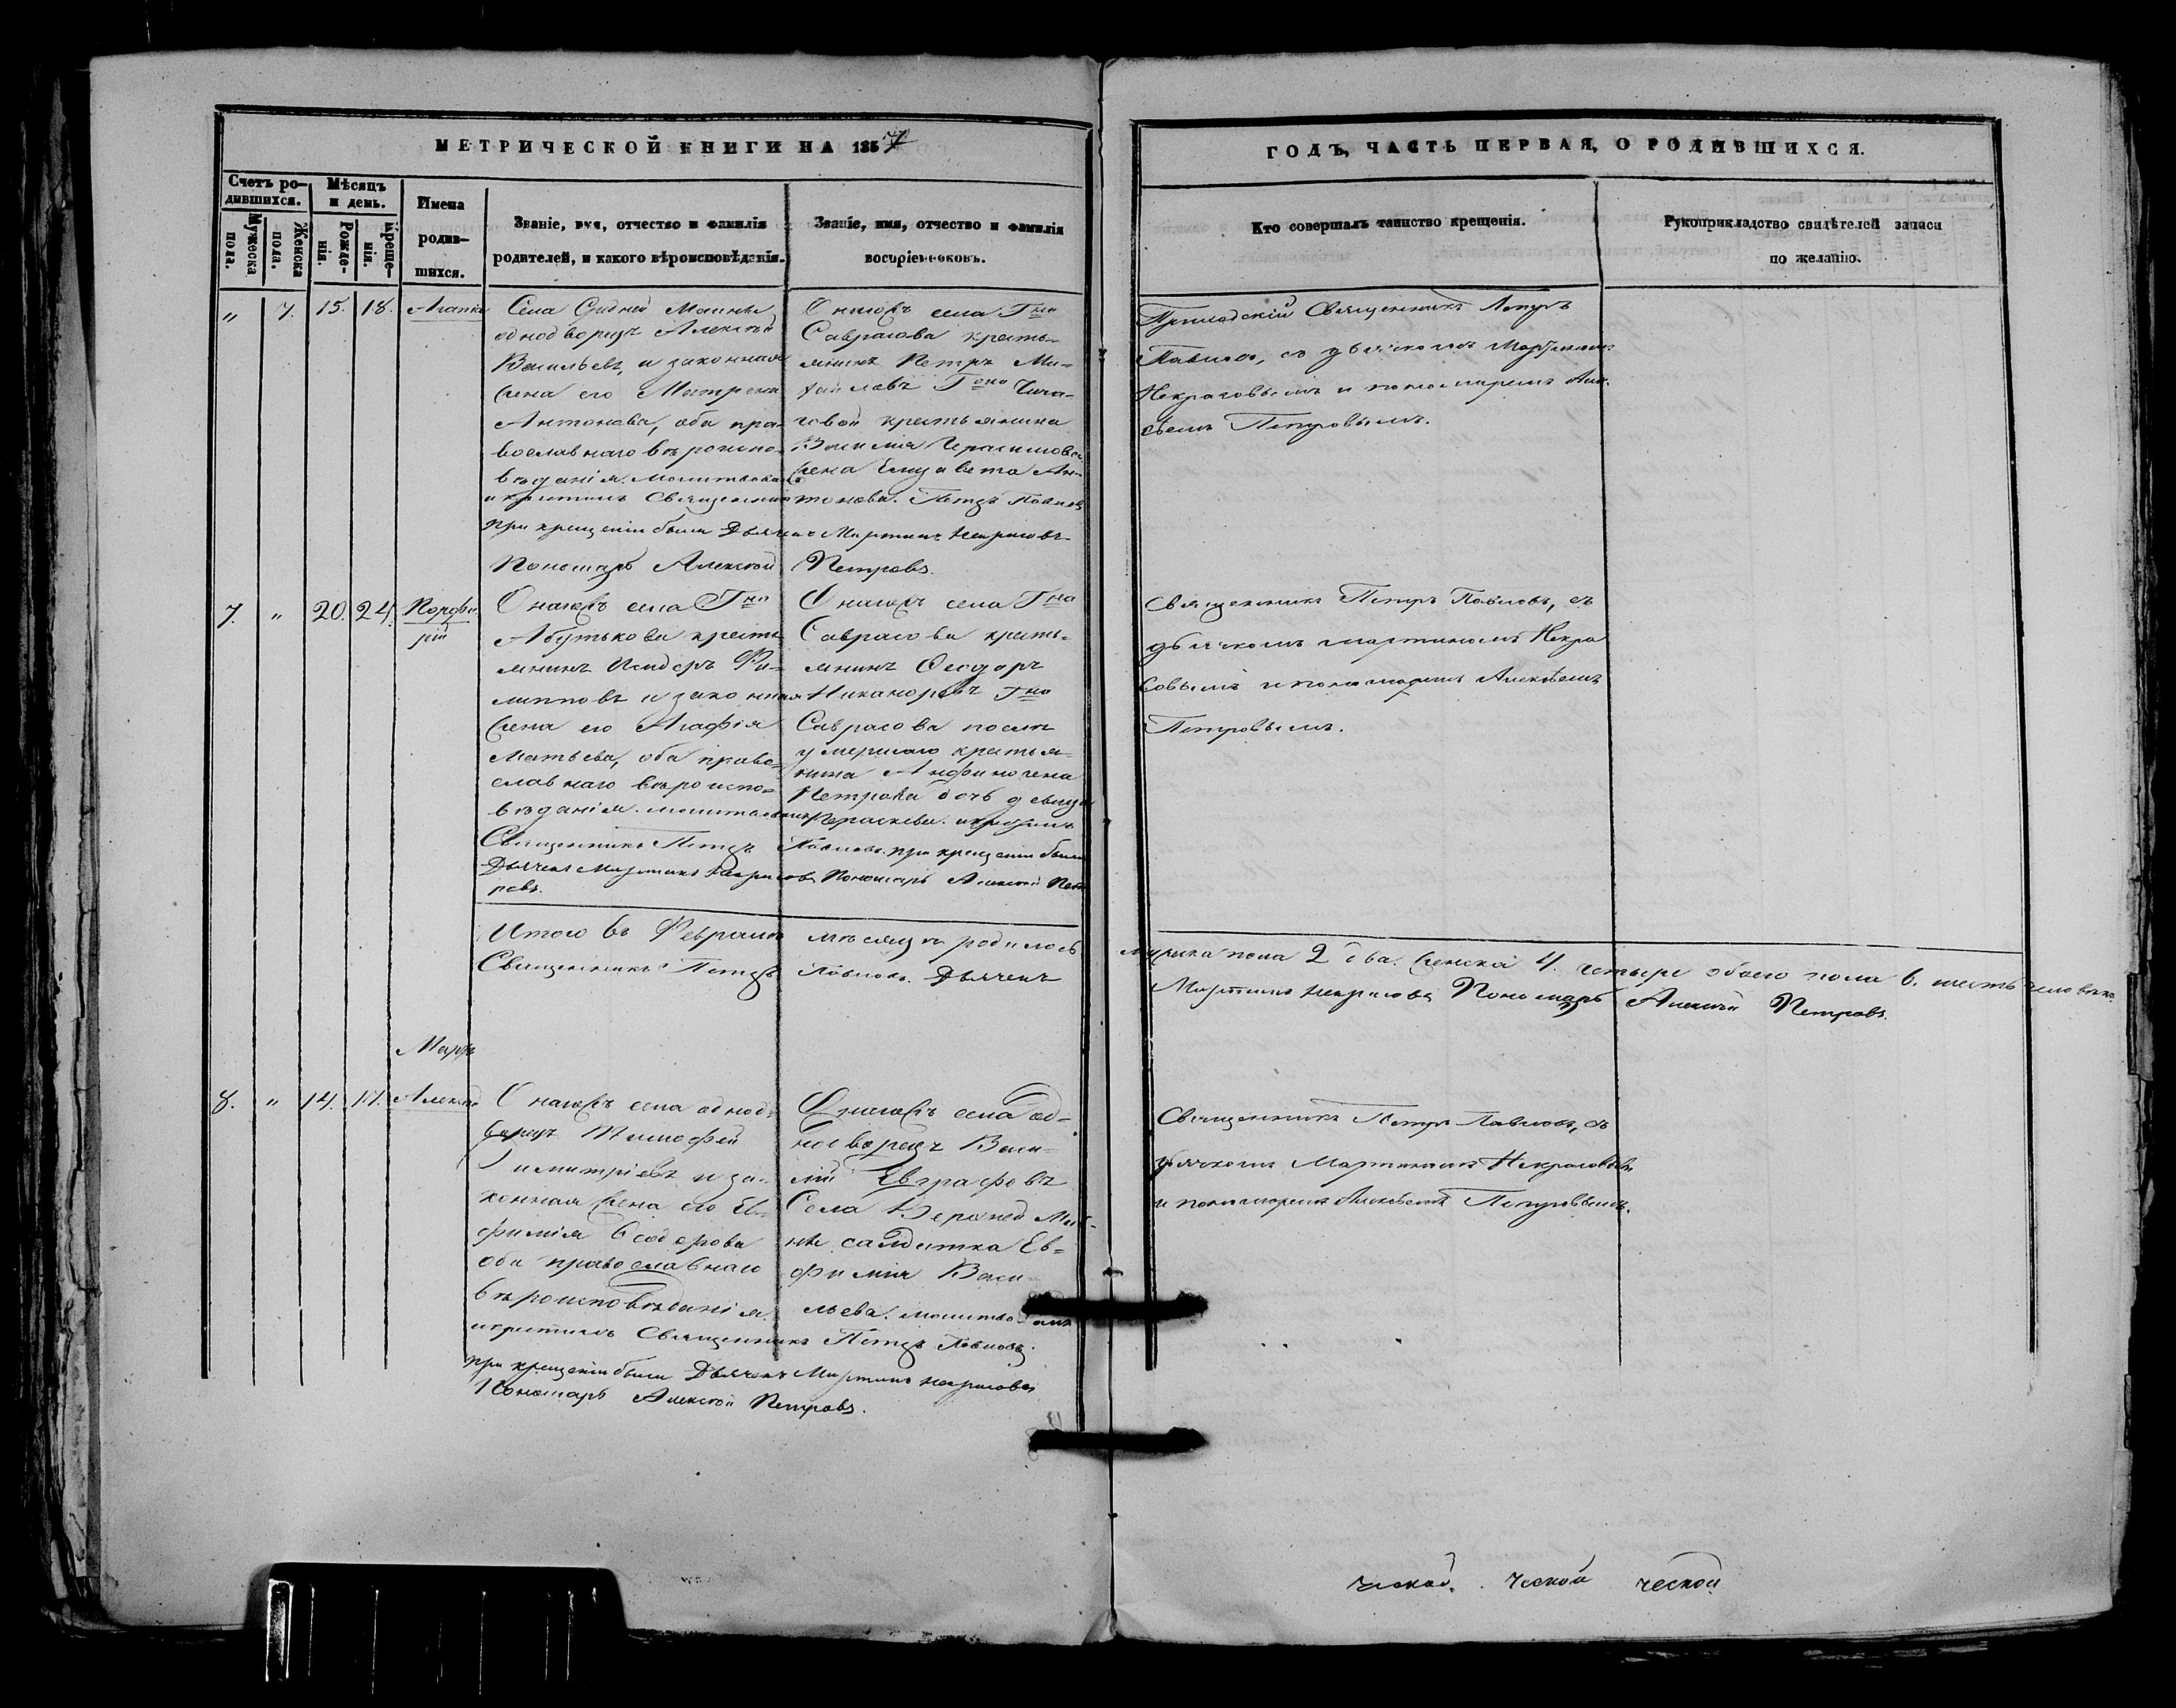 МЕТРИЧЕСКОЙ КНИГИ НА 1857
ГОДЪ, ЧАСТЬ ПЕРВАЯ, О РОДИВШИХСЯ.
Счетъ ро-
дившихся.
Мужеска
пола.
Женска
пола.
Мѣсяцъ
и день.
Рожде-
нія.
Креще-
нія.
Имена
родив-
шихся.
Званіе, имя, отчество и фамилія
родителей, и какого вѣроисповѣданія.
Званіе, имя, отчество и фамилія
воспріемниковъ.
Кто совершалъ таинство крещенія.
Рукоприкладство свидѣтелей записи
по желанію.
" 7. 15. 18.
Села Средней
однодворецъ Алексѣй
Васильевъ, и законная
жена его Матрена
Антонова, оба пра-
вославнаго вѣроиспо-
вѣданія. молитвовалъ
и крестилъ Священникъ
при крещеніи были Дьячекъ
Пономарь Алексѣй
села Гна
Саврасова кресть-
янинъ Петръ Ми-
хайловъ Гжи Чича-
говой крестьянина
Василія Герасимова
жена Елизавета Ан-
тонова. Петръ Павловъ
Мартинъ Некрасовъ
Петровъ.
Приходскій Священникъ Петръ
Павловъ, съ дьячкомъ Мартиномъ
Некрасовымъ и пономаремъ Алек-
сѣемъ Петровымъ.
7. " 20. 24. Порфи-
рій
Онагожъ села Гна
Абутькова кресть-
янинъ Исидоръ Фи-
липповъ и законная
жена его Агафія
Матвѣева, оба право-
славнаго вѣроиспо-
вѣданія. молитвовалъ
Священникъ Петръ
Дьячекъ Мартинъ Некрасовъ
ровъ.
Онагожъ села Гна
Саврасова кресть-
янинъ Ѳеодоръ
Никаноровъ Гна
Саврасова послѣ
умершаго крестья-
нина Анфиногена
Петрова дочь девица
Параскева. и крестилъ
Павловъ. при крещеніи были
Пономарь Алексѣй Пет-
Священникъ Петръ Павловъ, съ
дьячкомъ Мартиномъ Некра
совымъ и пономаремъ Алексѣемъ
Петровымъ.
Итого въ Февралѣ мѣсяцѣ родилось мужска пола 2 два. женска 4. четыре обоего пола 6. шесть человѣкъ.
Священникъ Петръ Павловъ. Дьячекъ Мартинъ Некрасовъ Пономарь Алексѣй Петровъ.
Мартъ
8. " 14. 17.
Онагожъ села однод-
ворецъ Тимофей
Димитріевъ и за-
конная жена его Ев-
фимія Ѳеодорова
оба православнаго
вѣроисповѣданія.
и крестилъ Священникъ Петръ Павловъ.
при крещеніи были Дьячекъ Мартинъ Некрасовъ
Пономарь Алексѣй Петровъ.
Онагожъ села од-
нодворецъ Васи-
лій Евграфовъ
Села Верхней
салдатка Ев-
фимія Васи-
льева. молитвовалъ
Священникъ Петръ Павловъ, съ
дьячкомъ Мартиномъ Некрасовымъ
и пономаремъ Алексѣемъ Петровымъ.
ческой. ческой ческой